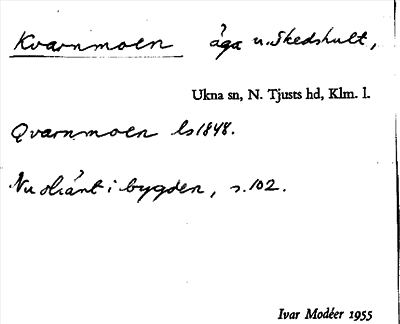 Kvarnmoen äga u. Skedshult,
Ukna sn, N. Tjusts hd, Klm. l.
Qvarnmoen ls 1848.
Nu okänt i bygden, s. 102.
Ivar Modéer 1955